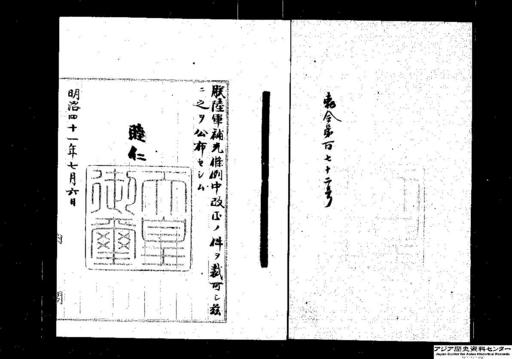 勅令第百七十二号
朕陸軍補充條例中改正ノ件ヲ裁可シ茲
ニ之ヲ公布セシム
睦仁
天皇
御璽
明治四十一年七月六日
内閣
アジア歴史資料センター
Japan Center for Asian Historical Records